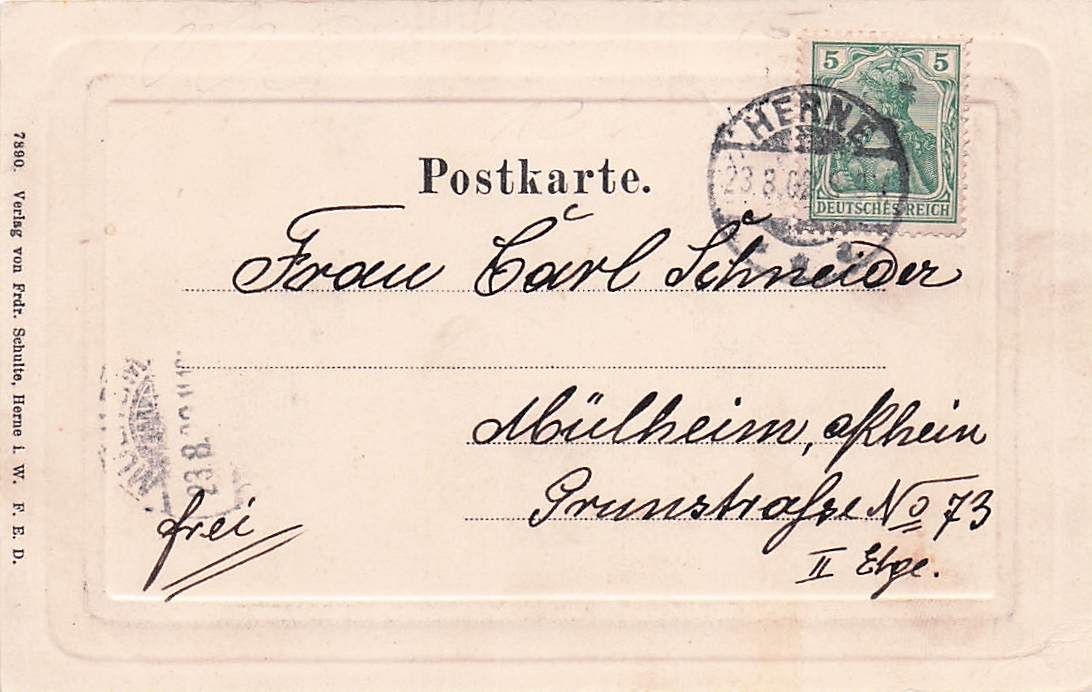 5 5
HERNE
23.8.02
DEUTSCHES REICH
Postkarte.
Frau Carl Schneider
Mülheim, a/Rhein
Grunstraße No 73
II Etge.
frei
23.8.
7890. Verlag von Frdr. Schulte, Herne i. W. F. E. D.